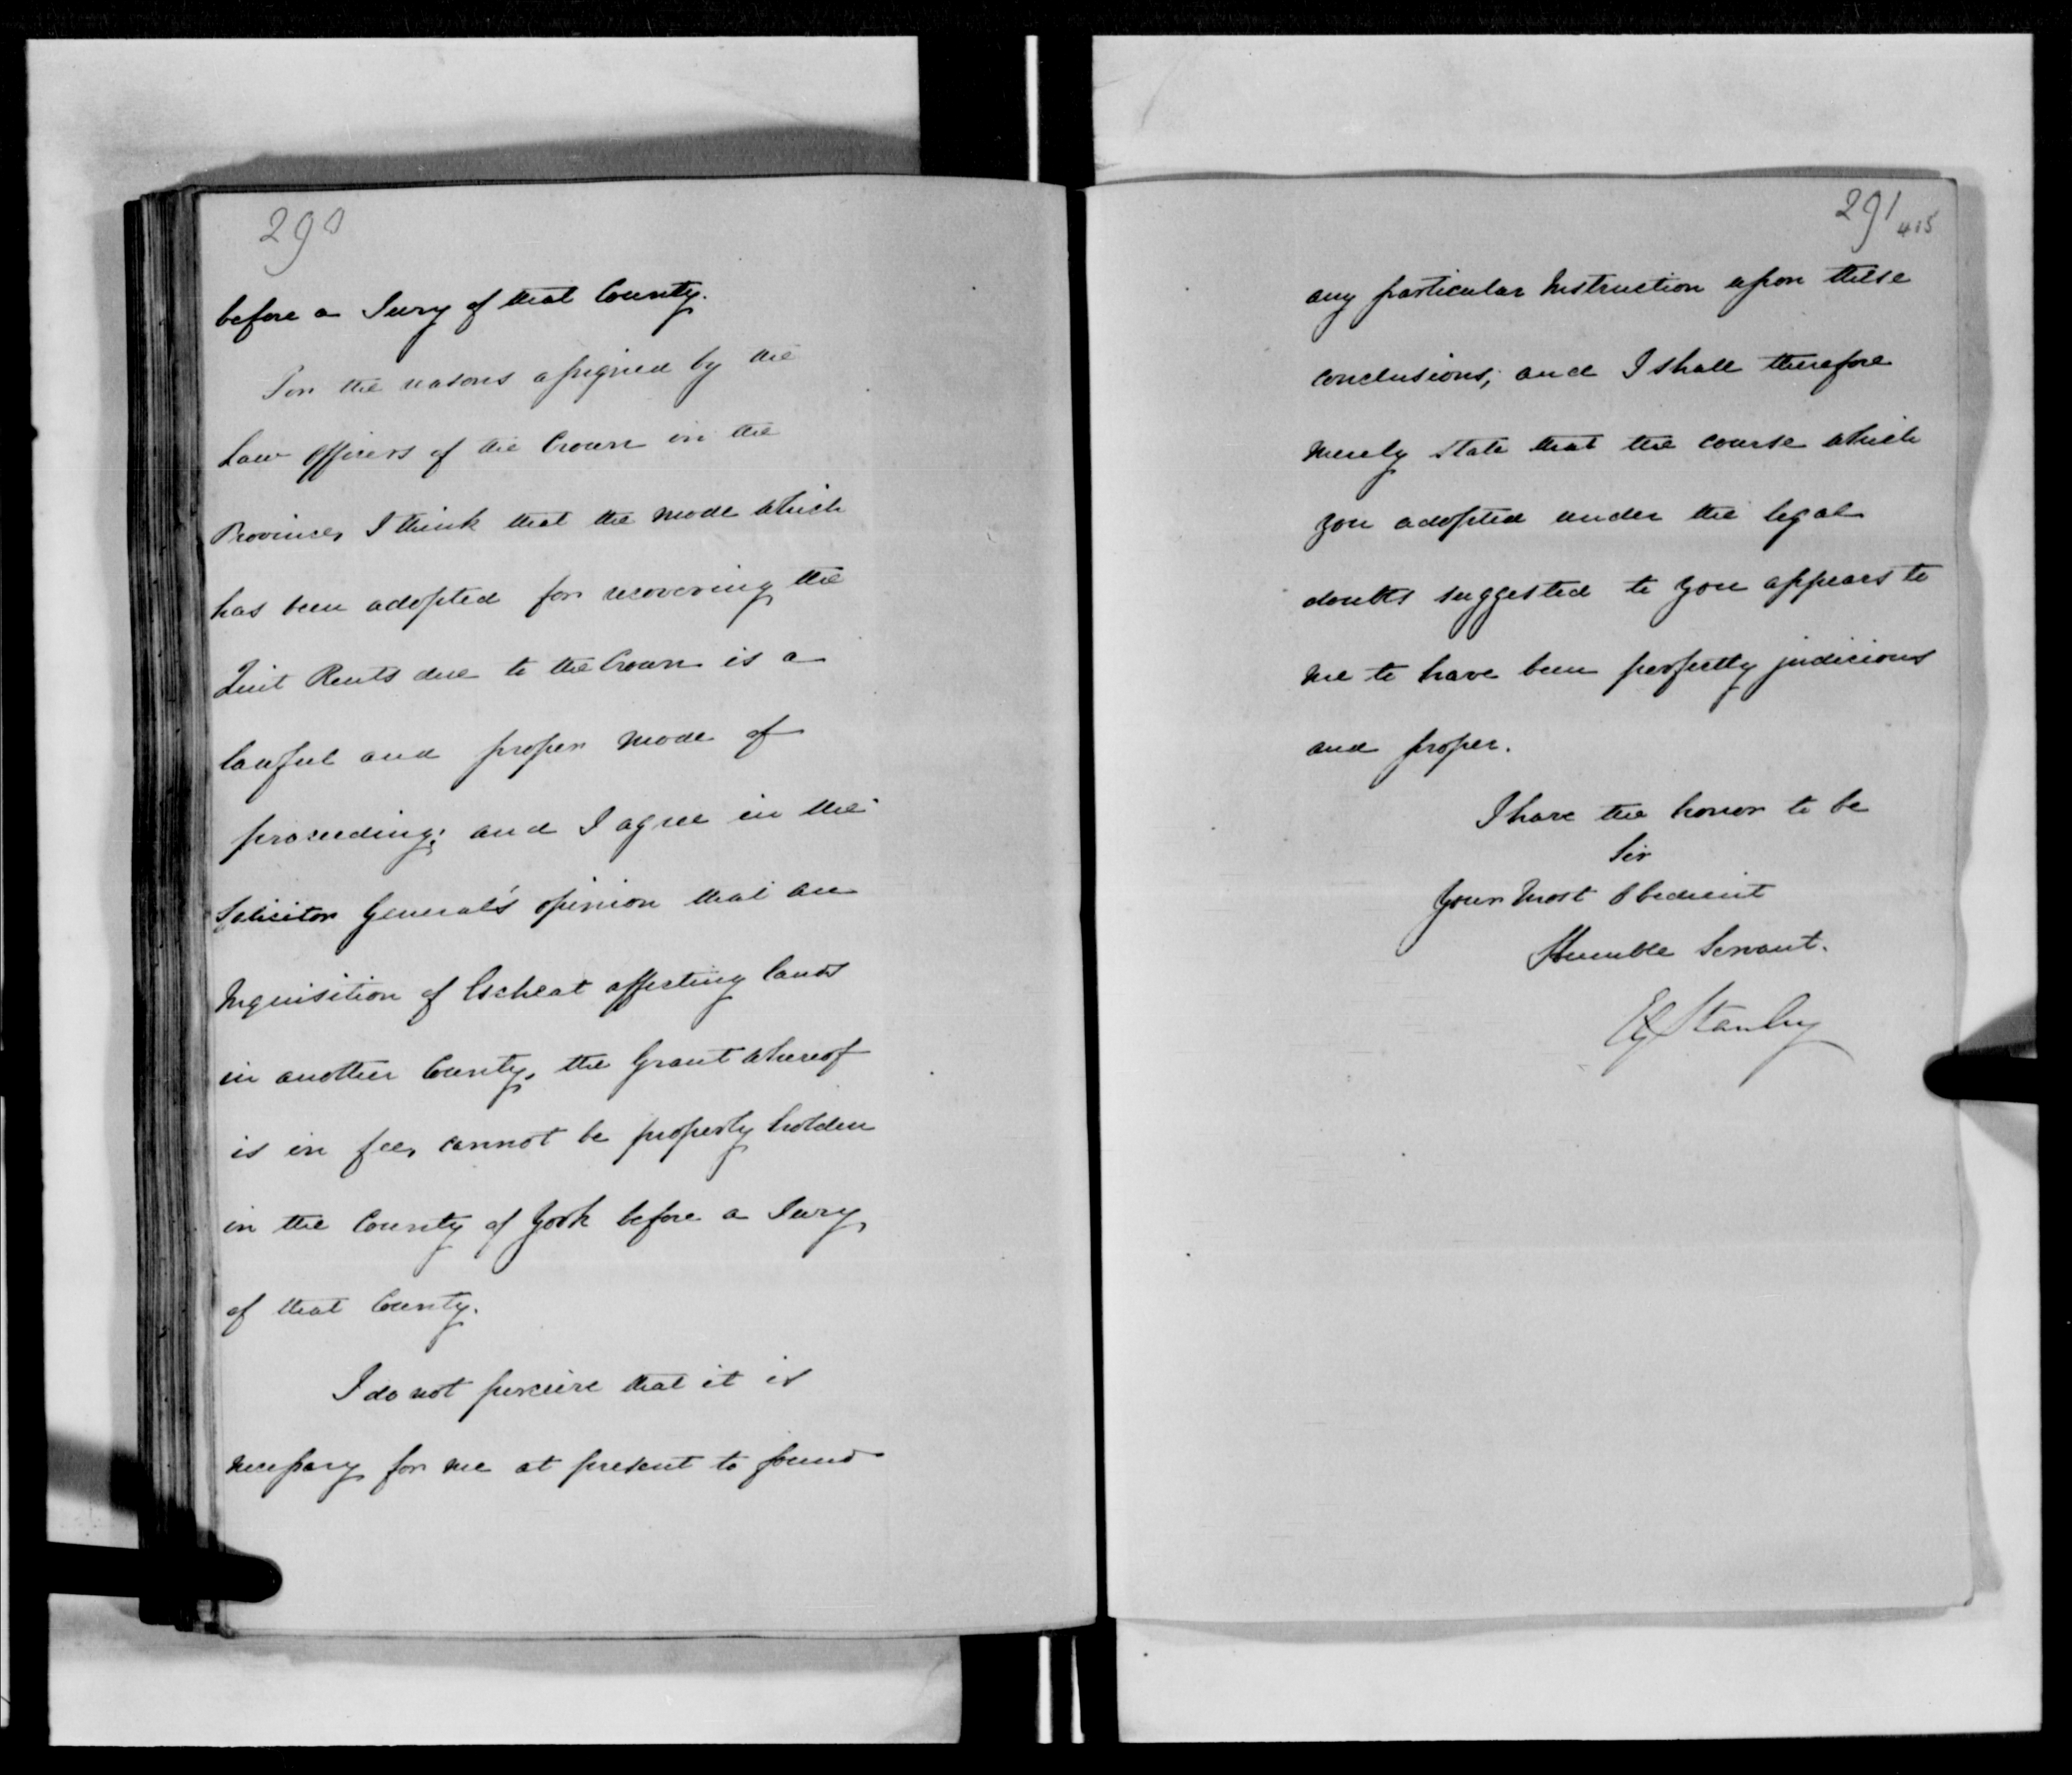 290
before a Jury of that County.
For the reasons assigned by the
Law Officers of the Crown in the
Province, I think that the mode which
has been adopted for recovering the
Quit Rents due to the Crown is a
lawful and proper mode of
proceeding; and I agree in the
Solicitor General's opinion that an
Inquisition of Escheat affecting lands
in another County, the Grant whereof
is in fee, cannot be properly holden
in the County of York before a Jury
of that County.
I do not perceive that it is
necessary for me at present to found
291
415
any particular Instruction upon these
conclusions; and I shall therefore
merely state that the course which
you adopted under the legal
doubts suggested to you appears to
me to have been perfectly judicious
and proper.
I have the honor to be
Sir
Your Most Obedient
Humble Servant.
Stanley